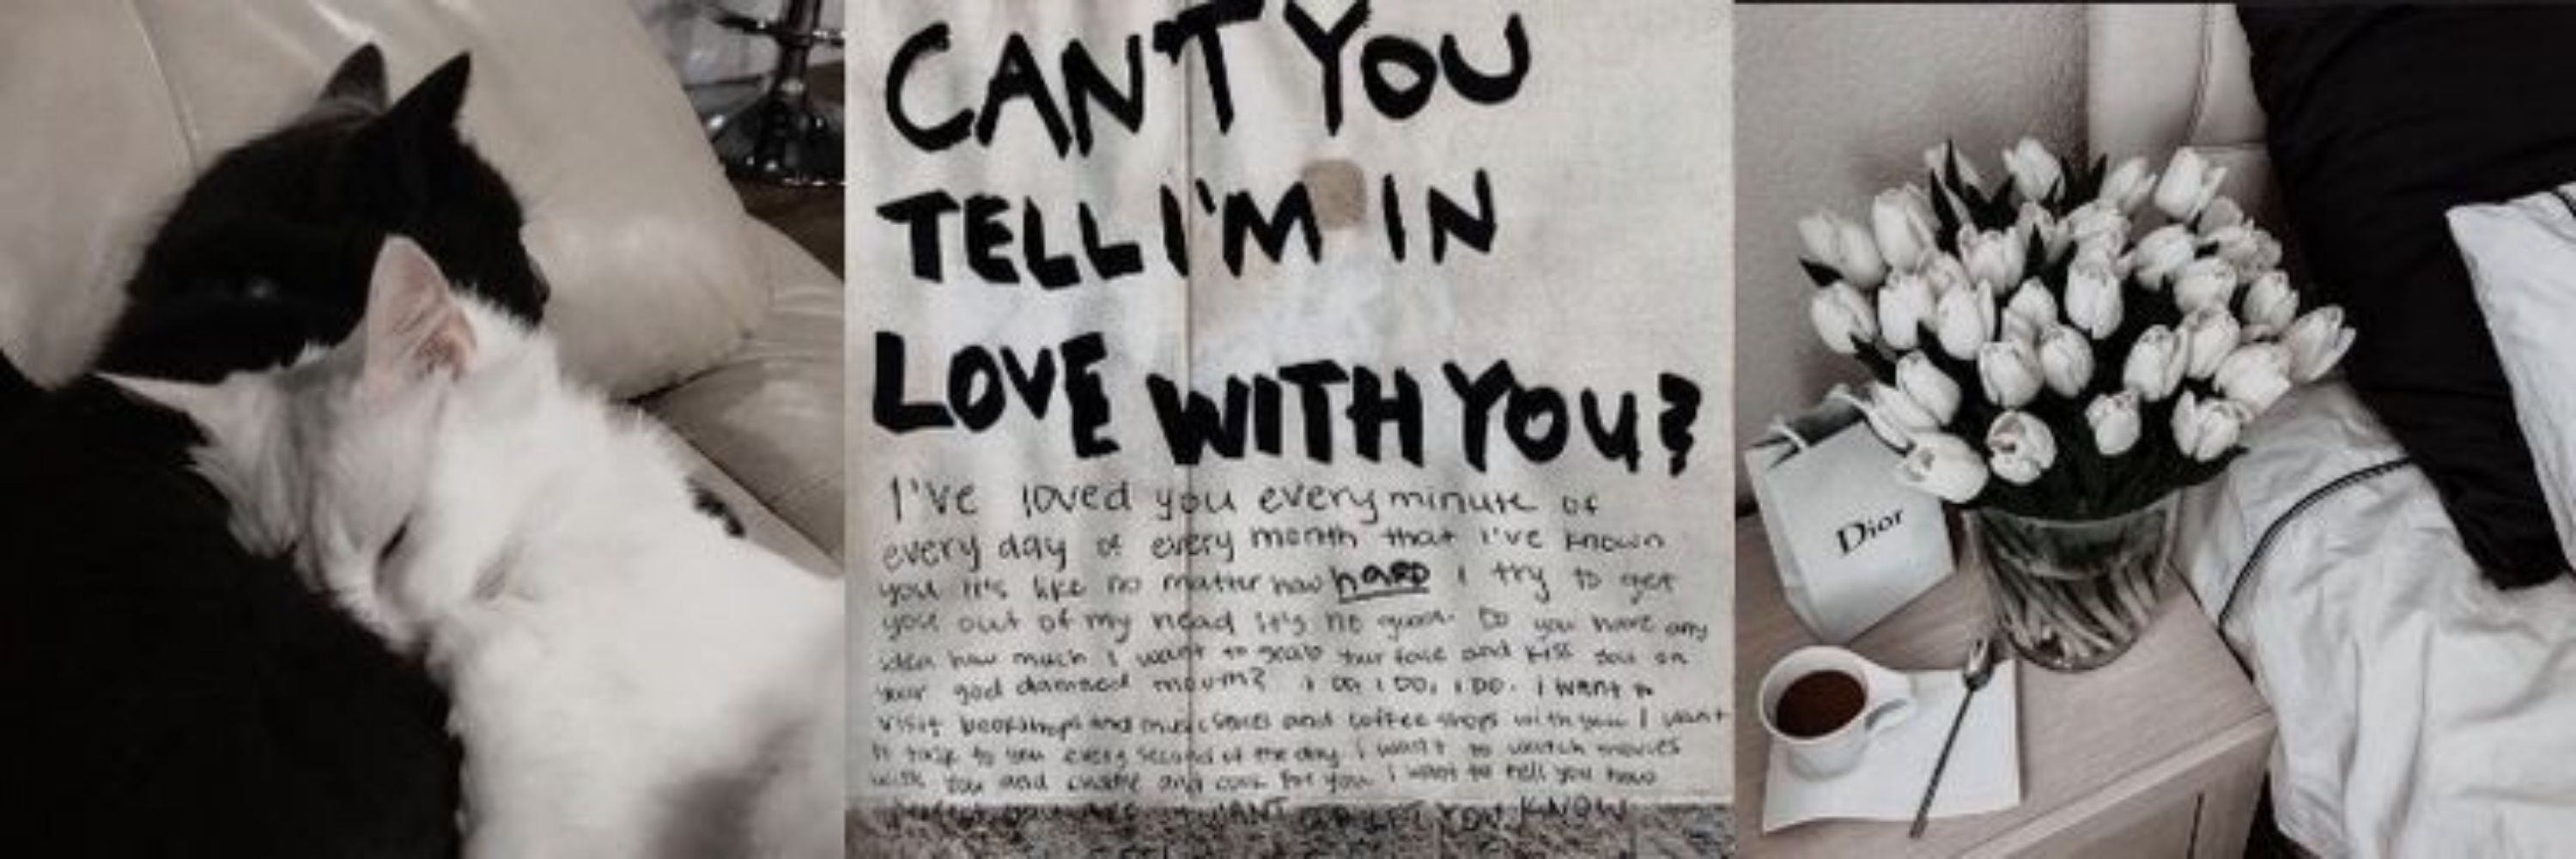 CAN'T YOU
TELL I'M IN
LOVE WITH YOU?
I've loved you every minute of
every day of every month that I've known
you it's like no matter how hARD I try to get
you out of my head it's no good. Do you have any
idea how much I want to grab your face and kiss you on
your god damned mouth? I DO, I DO, I DO. I want to
visit bookshops and music stores and coffee shops with you I want
to talk to you every second of the day I want to watch movies
with you and and cook for you I want to tell you how
perfect you ARE I WANT to LET YOU KNOW
Dior